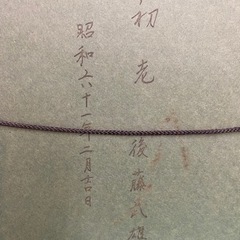 初老
後藤武雄
昭和六十一年二月吉日